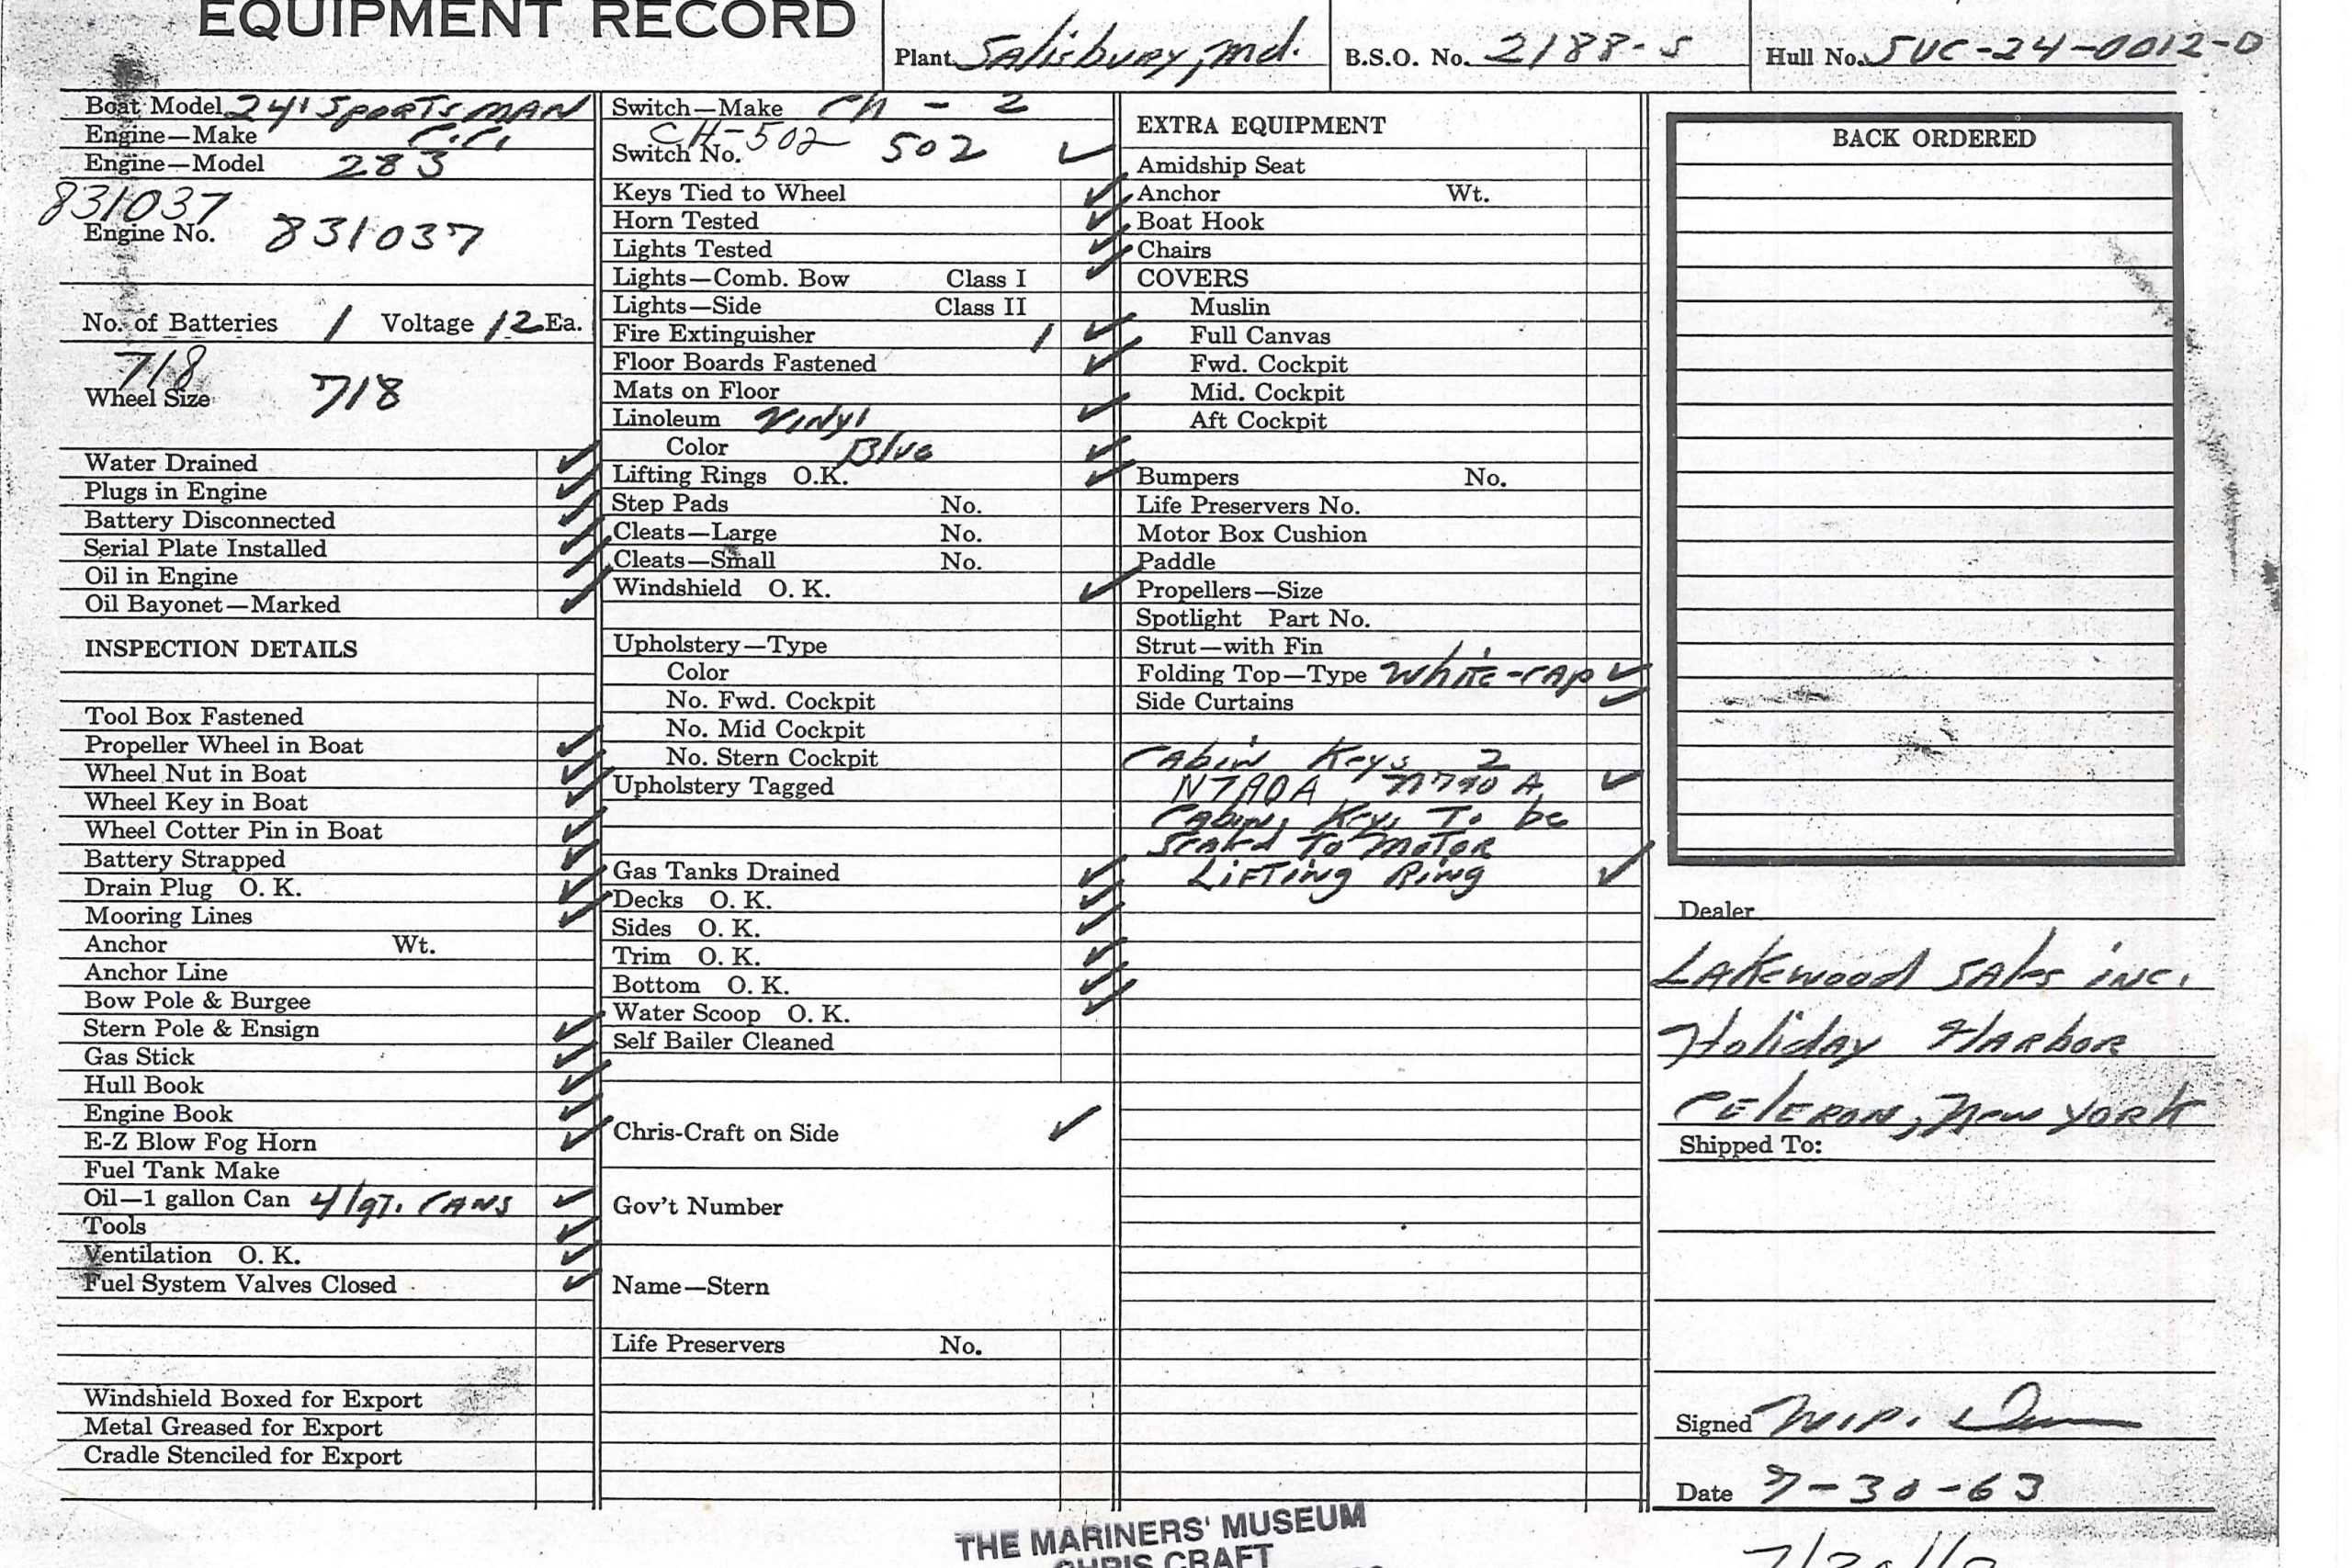 EQUIPMENT RECORD
Plant Salisbury, Md.
B.S.O. No. 2188-S
Hull No. SUC-24-0012-D
Boat Model 24' Sportsman
Engine—Make C.C.
Engine—Model 283
831037
Engine No. 831037
No. of Batteries 1 Voltage 12 Ea.
718
Wheel Size 718
Water Drained ✓
Plugs in Engine ✓
Battery Disconnected ✓
Serial Plate Installed ✓
Oil in Engine ✓
Oil Bayonet—Marked ✓
INSPECTION DETAILS
Tool Box Fastened
Propeller Wheel in Boat ✓
Wheel Nut in Boat ✓
Wheel Key in Boat ✓
Wheel Cotter Pin in Boat ✓
Battery Strapped ✓
Drain Plug O. K. ✓
Mooring Lines ✓
Anchor Wt.
Anchor Line
Bow Pole & Burgee
Stern Pole & Ensign ✓
Gas Stick ✓
Hull Book ✓
Engine Book ✓
E-Z Blow Fog Horn ✓
Fuel Tank Make
Oil—1 gallon Can 4/qt. cans ✓
Tools ✓
Ventilation O. K. ✓
Fuel System Valves Closed ✓
Windshield Boxed for Export
Metal Greased for Export
Cradle Stenciled for Export
Switch—Make CH - 2
CH-502
Switch No. 502 ✓
Keys Tied to Wheel ✓
Horn Tested ✓
Lights Tested ✓
Lights—Comb. Bow Class I ✓
Lights—Side Class II
Fire Extinguisher 1 ✓
Floor Boards Fastened ✓
Mats on Floor
Linoleum Vinyl ✓
Color Blue ✓
Lifting Rings O.K. ✓
Step Pads No.
Cleats—Large No.
Cleats—Small No.
Windshield O. K. ✓
Upholstery—Type
Color
No. Fwd. Cockpit
No. Mid Cockpit
No. Stern Cockpit
Upholstery Tagged
Gas Tanks Drained ✓
Decks O. K. ✓
Sides O. K. ✓
Trim O. K. ✓
Bottom O. K. ✓
Water Scoop O. K. ✓
Self Bailer Cleaned
Chris-Craft on Side ✓
Gov't Number
Name—Stern
Life Preservers No.
EXTRA EQUIPMENT
Amidship Seat
Anchor Wt.
Boat Hook
Chairs
COVERS
Muslin
Full Canvas
Fwd. Cockpit
Mid. Cockpit
Aft Cockpit
Bumpers No.
Life Preservers No.
Motor Box Cushion
Paddle
Propellers—Size
Spotlight Part No.
Strut—with Fin
Folding Top—Type White-cap ✓
Side Curtains ✓
Cabin Keys 2
N790A N790A ✓
Cabin Keys To be
to Motor
Lifting Ring ✓
BACK ORDERED
Dealer
Lakewood Sales inc.
Holiday Harbor
Celeron, New York
Shipped To:
Signed
Date 7-30-63
THE MARINERS' MUSEUM
CHRIS CRAFT